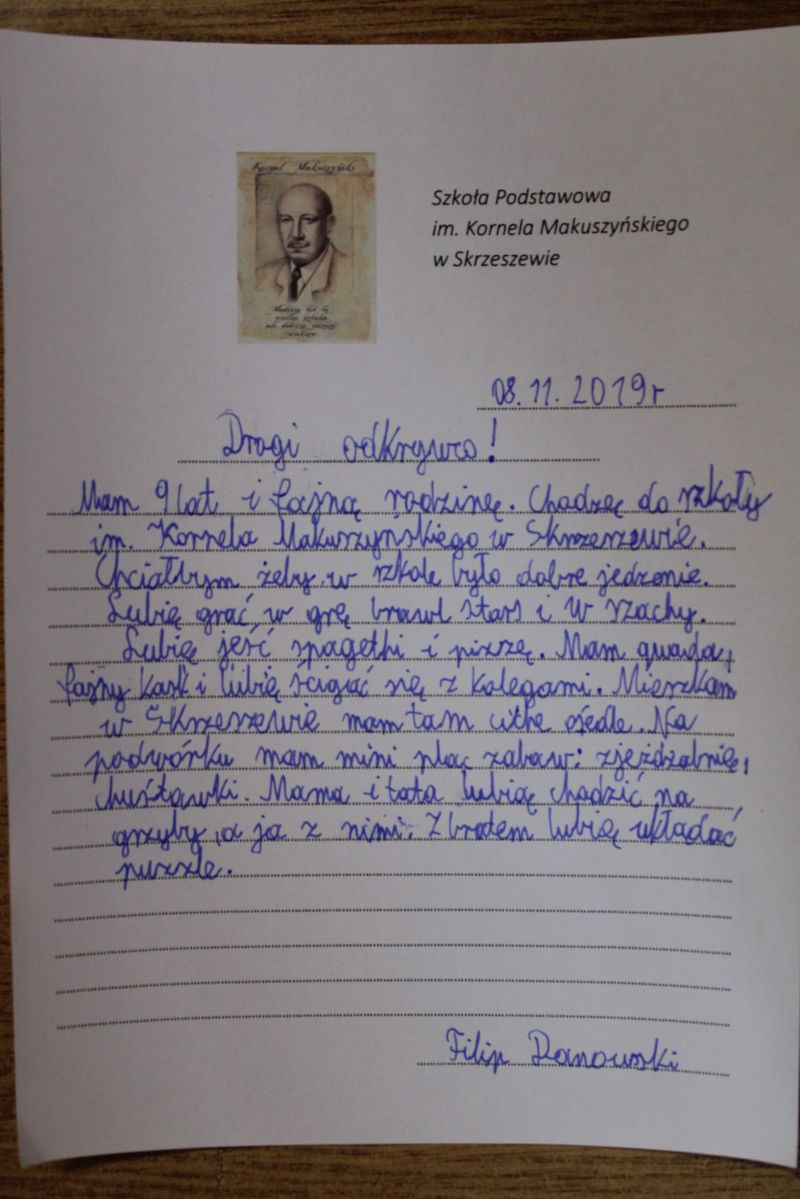 Kornel Makuszyński
Szkoła Podstawowa
im. Kornela Makuszyńskiego
w Skrzeszewie
08.11.2019r
Drogi odkrywco!
Mam 9 lat i fajną rodzinę. Chodzę do szkoły
im. Kornela Makuszyńskiego w Skrzeszewie.
Chciałbym żeby w szkole było dobre jedzenie.
Lubię grać w grę brawl stars i w szachy.
Lubię jeść spagetki i pizzę. Mam quada,
fajny kask i lubię ścigać się z kolegami. Mieszkam
w Skrzeszewie mam tam ciche osiedle. Na
podwórku mam mini plac zabaw: zjeżdżalnię,
huśtawki. Mama i tata lubią chodzić na
grzyby, a ja z nimi. Z bratem lubię układać
puzzle.
Filip Danowski